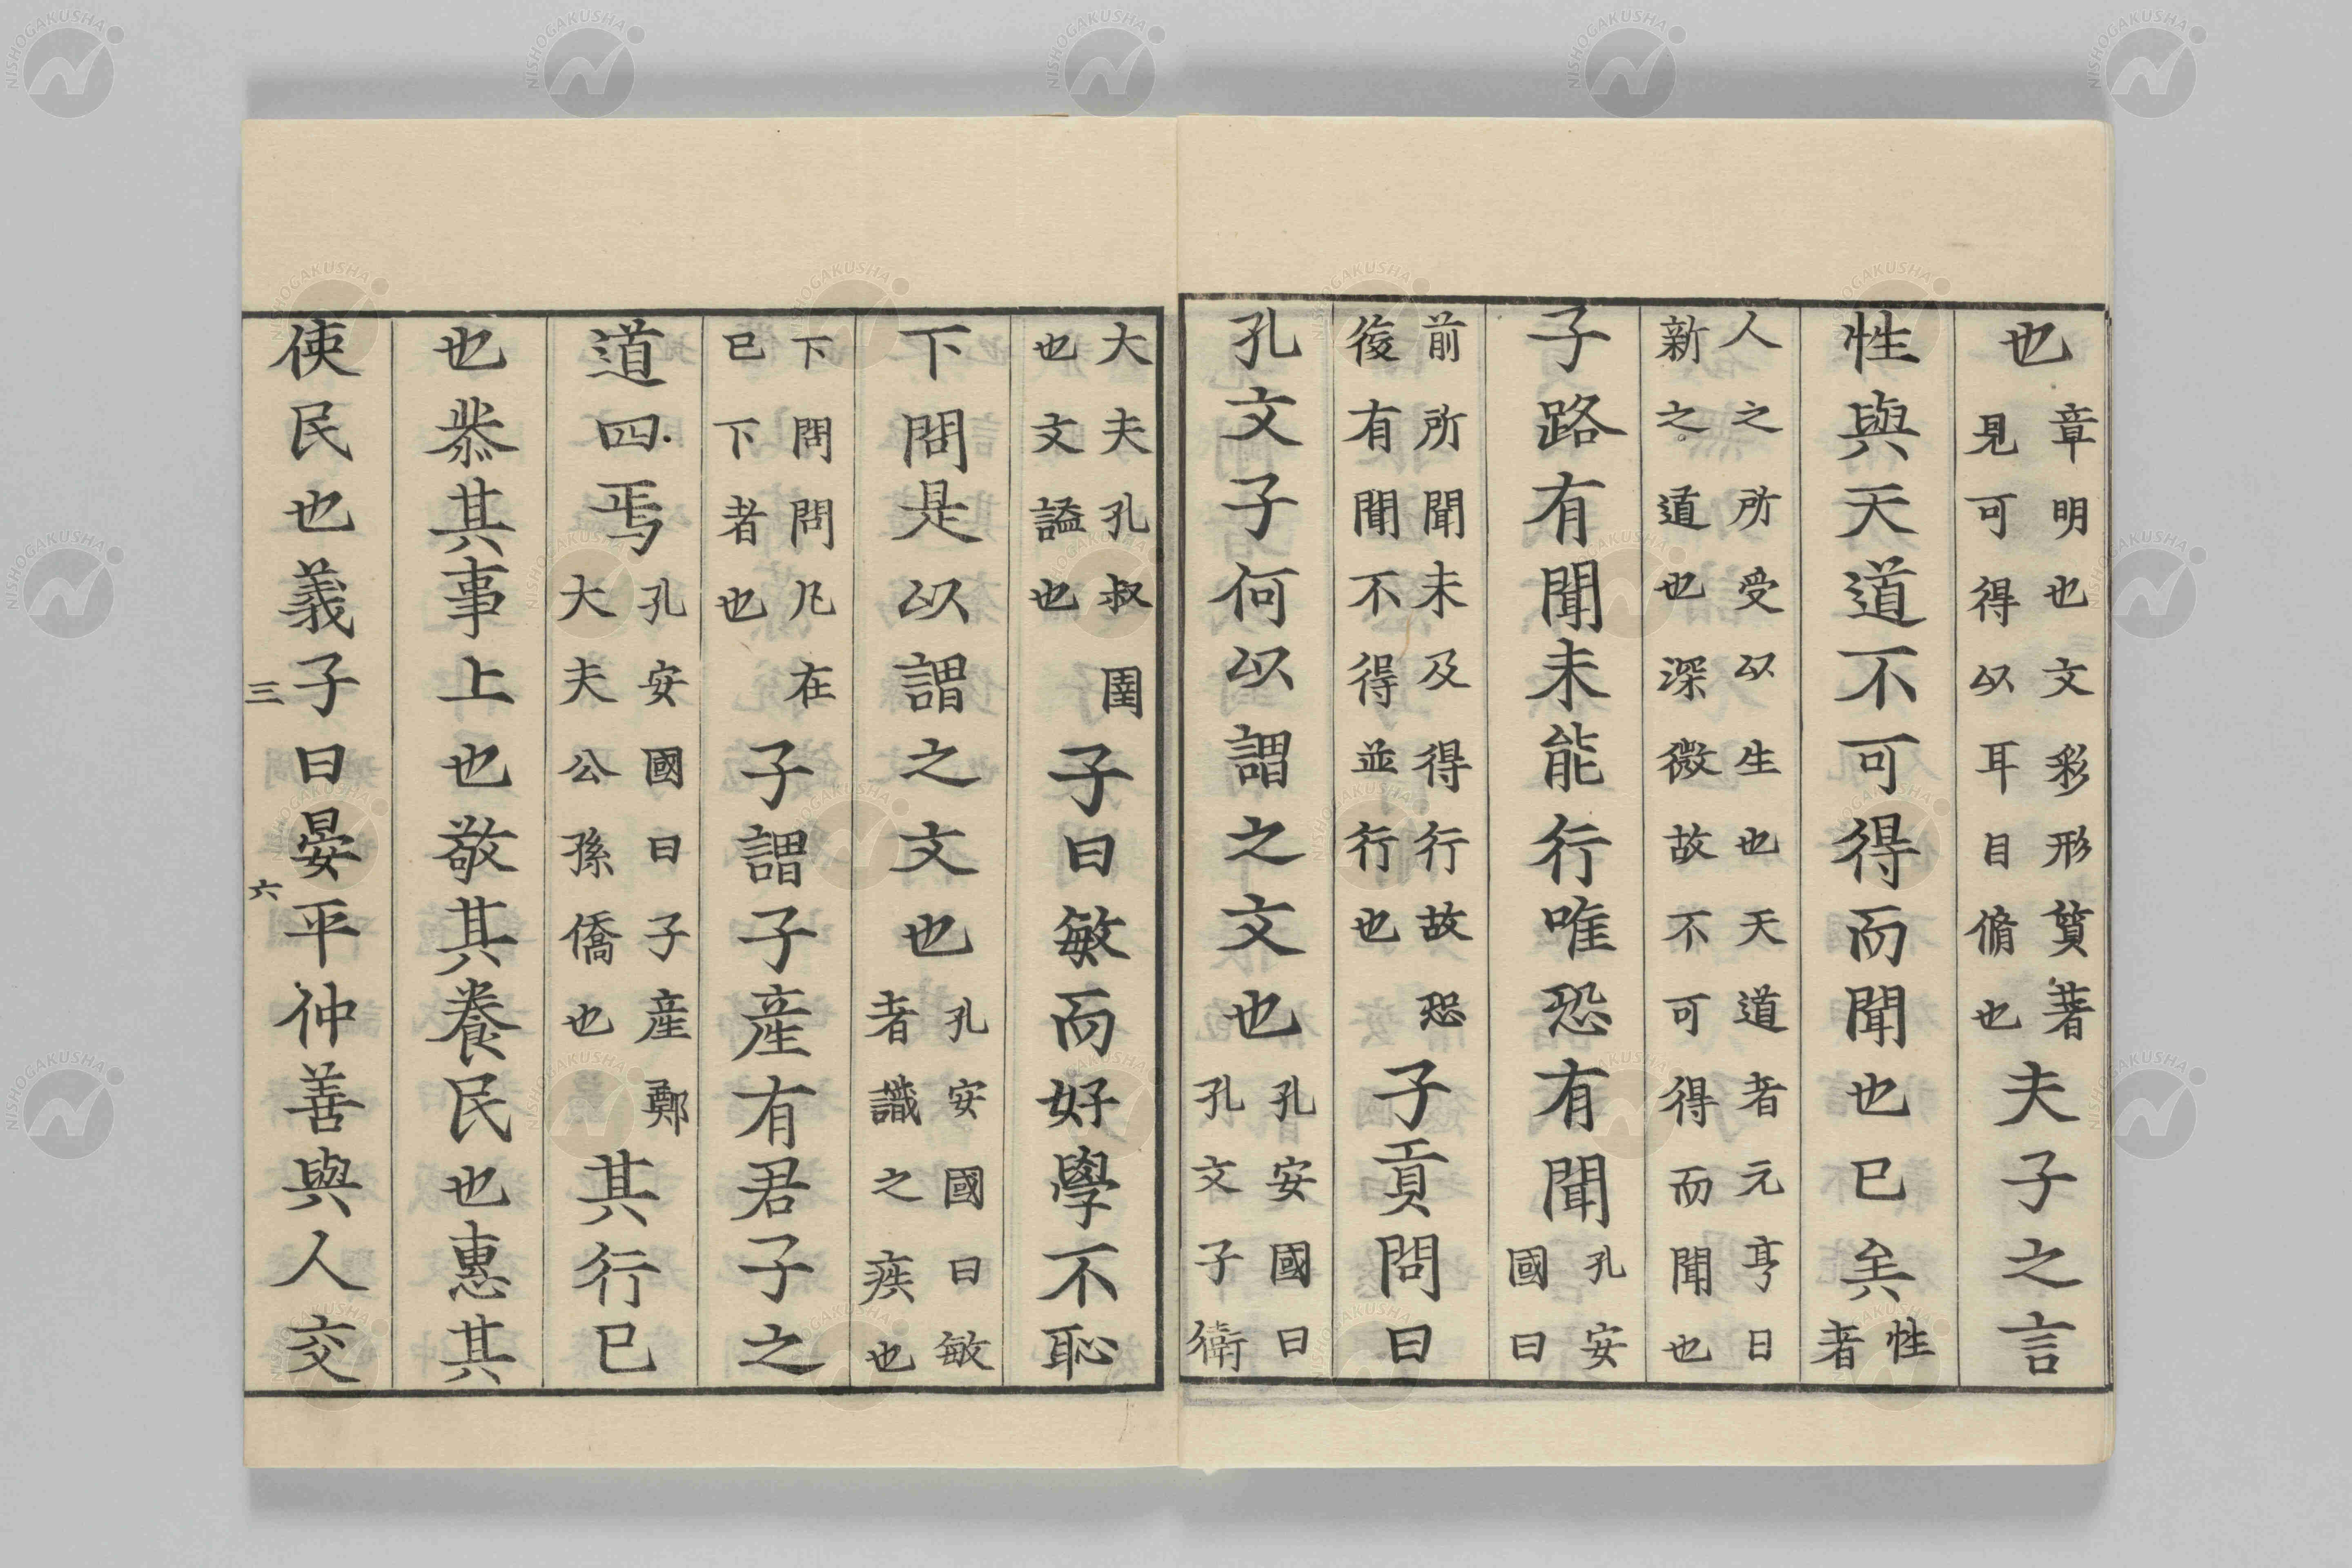 也章明也文彩形質著見可得以耳目脩也夫子之言
性與天道不可得而聞也已矣性者
人之所受以生也天道者元亨日
新之道也深微故不可得而聞也
子路有聞未能行唯恐有聞孔安國曰
前所聞未及得行故恐後有聞不得並行也子貢問曰
孔文子何以謂之文也孔安國曰孔文子衛
大夫孔叔圉也文謚也子曰敏而好學不恥
下問是以謂之文也孔安國曰敏者識之疾也
下問問凡在已下者也子謂子産有君子之
道四焉孔安國曰子産鄭大夫公孫僑也其行已
也恭其事上也敬其養民也惠其
使民也義子曰晏平仲善與人交
三 六
NISHOGAKUSHA